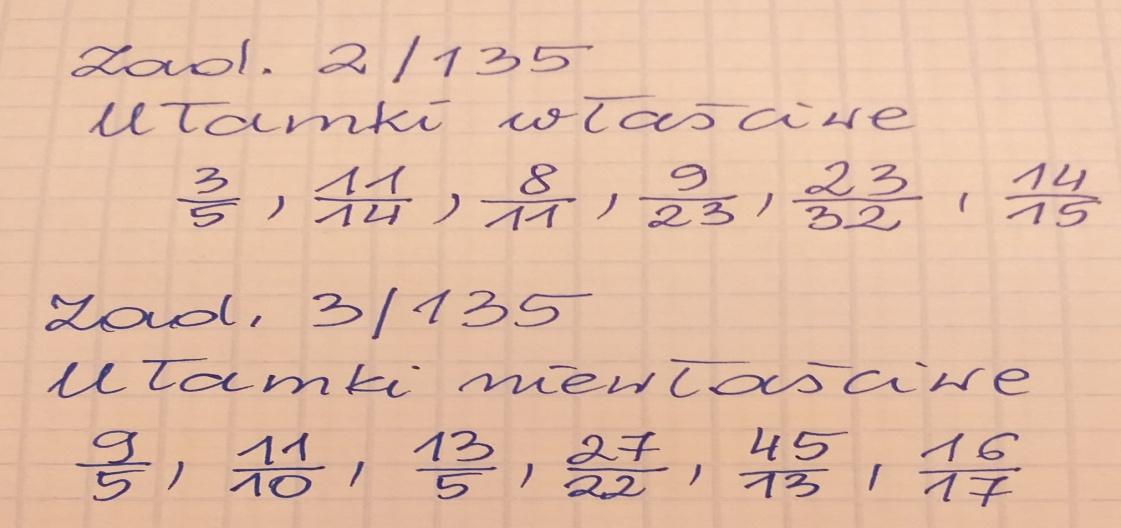 Zad. 2/135
Ułamki właściwe
3/5, 11/14, 8/11, 9/23, 23/32, 14/15
Zad. 3/135
Ułamki niewłaściwe
9/5, 11/10, 13/5, 27/22, 45/13, 16/17